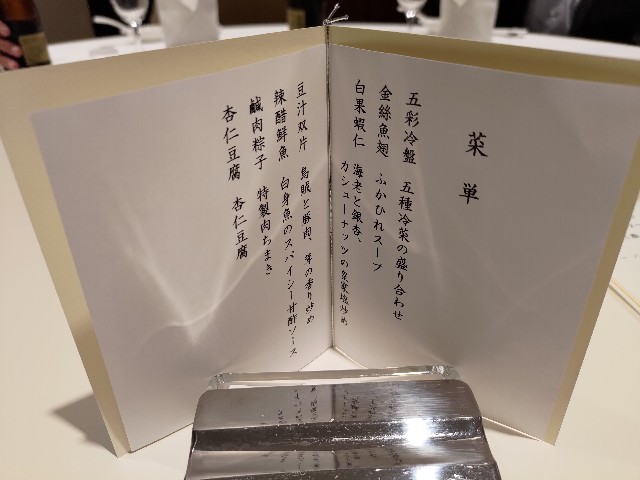 菜単
五彩冷盤 五種冷菜の盛り合わせ
金絲魚翅 ふかひれスープ
白果蝦仁 海老と銀杏、
カシューナッツの自家塩炒め
豆汁双片 烏賊と豚肉、の香り炒め
辣醋鮮魚 白身魚のスパイシー甘酢ソース
鹹肉粽子 特製肉ちまき
杏仁豆腐 杏仁豆腐